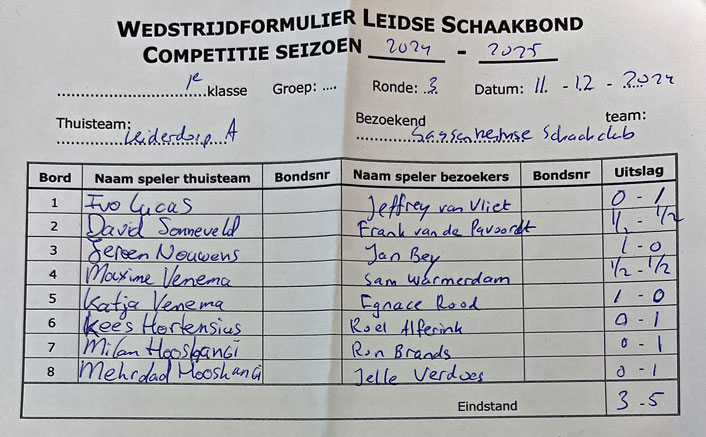 WEDSTRIJDFORMULIER LEIDSE SCHAAKBOND
COMPETITIE SEIZOEN 2024 - 2025
1e klasse Groep: .... Ronde: 3 Datum: 11 - 12 - 2024
Thuisteam: Leiderdorp A Bezoekend team: Sassenheimse Schaakclub
Bord Naam speler thuisteam Bondsnr Naam speler bezoekers Bondsnr Uitslag
1 Ivo Lucas Jeffrey van Vliet 0 - 1
2 David Sonneveld Frank van de Pavoordt 1/2 - 1/2
3 Jeroen Nouwens Jan Bey 1 - 0
4 Maxime Venema Sam Warmerdam 1/2 - 1/2
5 Katja Venema Egnace Rood 1 - 0
6 Kees Hortensius Roel Alferink 0 - 1
7 Milan Hooshangi Ron Brands 0 - 1
8 Mehrdad Hooshangi Jelle Verdoes 0 - 1
Eindstand 3 - 5